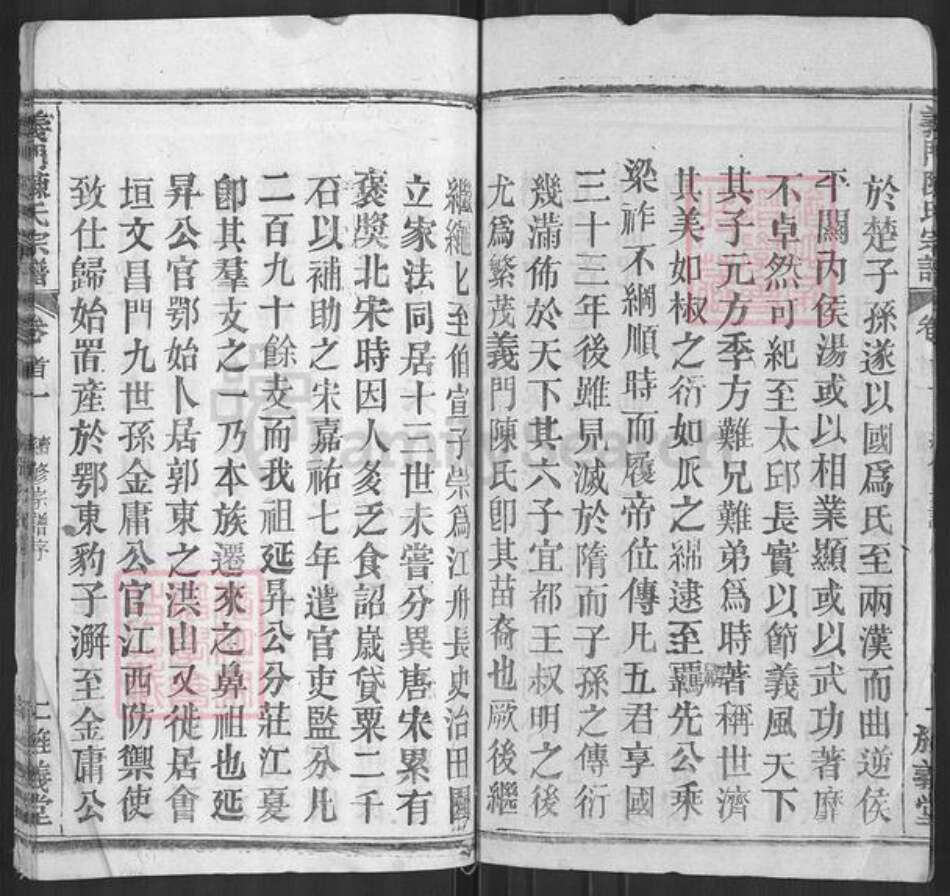 於楚子孫遂以國爲氏至兩漢而曲逆侯
不關內侯湯或以相業顯或以武功著靡
不卓然可紀至太邱長實以節義風天下
其子元方季方難兄難弟爲時著稱世濟
其美如椒之衍如𠂢之綿逮至霸先公乘
梁祚不綱順時而履帝位傳凡五君享國
三十三年後雖見滅於隋而子孫之傳衍
幾滿佈於天下其六子宜都王叔明之後
尤爲繁茂義門陳氏卽其苗裔也厥後繼
繼繩繩化至伯宣子崇爲江州長史治田園
立家法同居十三世未嘗分異唐宋累有
褒獎北宋時因人多乏食詔嵗貸粟二千
石以補助之宋嘉祐七年遣官吏監分凡
二百九十餘支而我祖延昇公分莊江夏
卽其羣支之一乃本族遷來之鼻祖也延
昇公官鄂始卜居郭東之洪山又徙居會
垣文昌門九世孫金庸公官江西防禦使
致仕歸始置産於鄂東豹子澥至金庸公
義門陳氏宗譜
卷首一
續修宗譜序
二
旌義堂